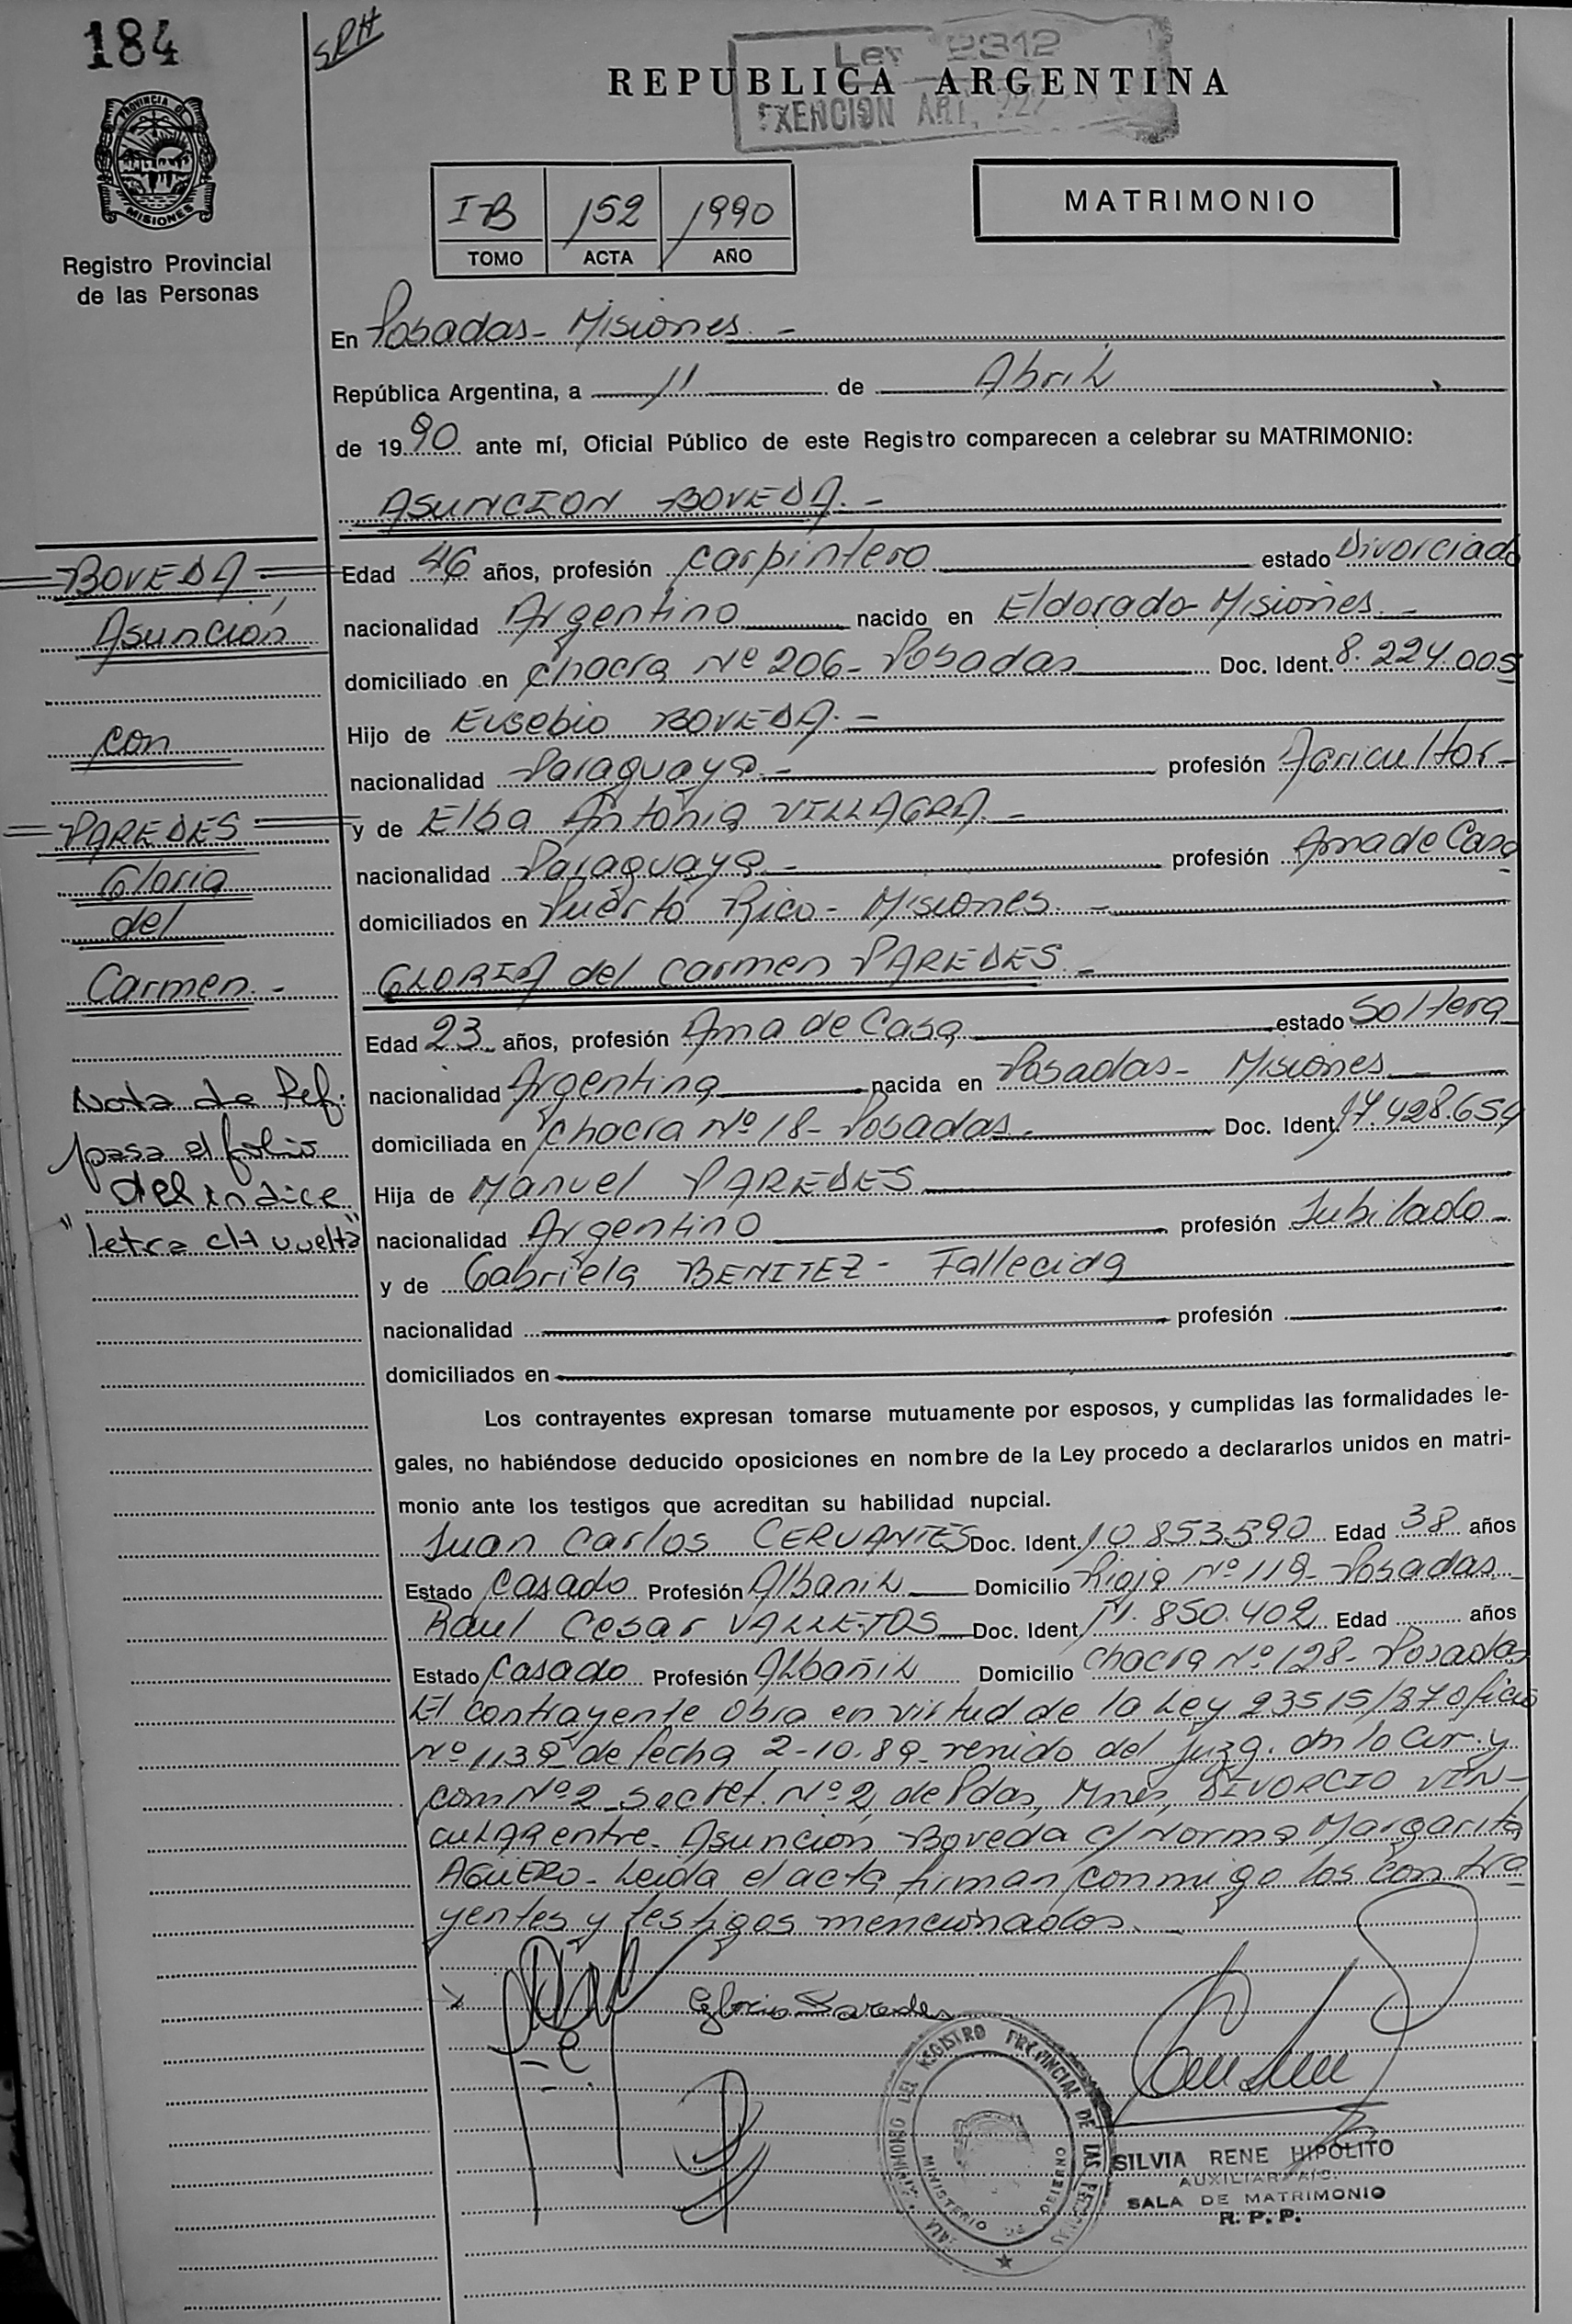 184
SRH
Ley 2312
REPUBLICA ARGENTINA
EXENCION ART. 227
PROVINCIA DE MISIONES
Registro Provincial
de las Personas
I-B 152 1990
TOMO ACTA AÑO
MATRIMONIO
En Posadas - Misiones. -
República Argentina, a 11 de Abril
de 1990 ante mí, Oficial Público de este Registro comparecen a celebrar su MATRIMONIO:
ASUNCION BOVEDA. -
BOVEDA,
Asunción
con
PAREDES
Gloria
del
Carmen. -
Edad 46 años, profesión Carpintero estado Divorciado
nacionalidad Argentino nacido en Eldorado - Misiones. -
domiciliado en Chacra Nº 206 - Posadas Doc. Ident. 8.224.005
Hijo de Eusebio BOVEDA. -
nacionalidad Paraguaya. - profesión Agricultor -
y de Elba Antonia VILLAGRA. -
nacionalidad Paraguaya. - profesión Ama de Casa
domiciliados en Puerto Rico - Misiones. -
GLORIA del Carmen PAREDES -
Edad 23 años, profesión Ama de Casa estado Soltera
nacionalidad Argentina nacida en Posadas - Misiones. -
domiciliada en Chacra Nº 18 - Posadas. - Doc. Ident. 17.428.654
Hija de Manuel PAREDES
nacionalidad Argentino profesión Jubilado -
y de Gabriela BENITEZ - Fallecida
nacionalidad profesión
domiciliados en
Nota de Ref.
pasa al folio
del indice
"letra CH vuelta"
Los contrayentes expresan tomarse mutuamente por esposos, y cumplidas las formalidades le-
gales, no habiéndose deducido oposiciones en nombre de la Ley procedo a declararlos unidos en matri-
monio ante los testigos que acreditan su habilidad nupcial.
Juan Carlos CERVANTES Doc. Ident. 10.853.590 Edad 38 años
Estado Casado Profesión Albañil Domicilio Rioja Nº 119 - Posadas -
Raul Cesar VALLEJOS Doc. Ident. 11.850.402 Edad años
Estado Casado Profesión Albañil Domicilio Chacra Nº 128 - Posadas
El contrayente obra en virtud de la Ley 23515/87 oficio
Nº 1139 de fecha 2-10-89 - venido del Juzg. en lo Civ. y
Com Nº 2 - Secret. Nº 2, de Pdas, Mnes, DIVORCIO VIN-
CULAR entre - Asunción Boveda c/ Norma Margarita
AGUERO - Leida el acta firman conmigo los contra
yentes y testigos mencionados. -
Gloria Paredes
SALA MATRIMONIO DEL REGISTRO PROVINCIAL DE LAS PERSONAS
MINISTERIO DE GOBIERNO
SILVIA RENE HIPOLITO
AUXILIAR
SALA DE MATRIMONIO
R. P. P.